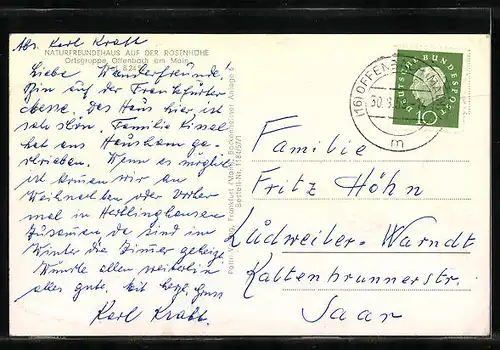 Abs. Karl Kraft
NATURFREUNDEHAUS AUF DER ROSENHÖHE
Ortsgruppe Offenbach am Main
Liebe Wanderfreunde!
Bin auf der Frankfurter
Messe. Das Haus hier ist
sehr schön. Familie Kissel
hat aus Hausham ge-
schrieben. Wenn es möglich
ist können wir an
Weihnachten oder vorher
mal in Hertlinghausen
zusammen da sind im
Winter die Zimmer geheizt
Wünsche allen weiterhin
alles gute. Mit herzl. Gruss
Karl Kraft.
Frankfurt (Main), Beckenheimer Anlage
Bestell-Nr. 1184/5/71
(16) OFFENBACH (MAIN)
30.8.59
m
DEUTSCHE BUNDESPOST
10
Familie
Fritz Höhn
Lüdweiler-Warndt
Kaltenbrunnerstr.
Saar